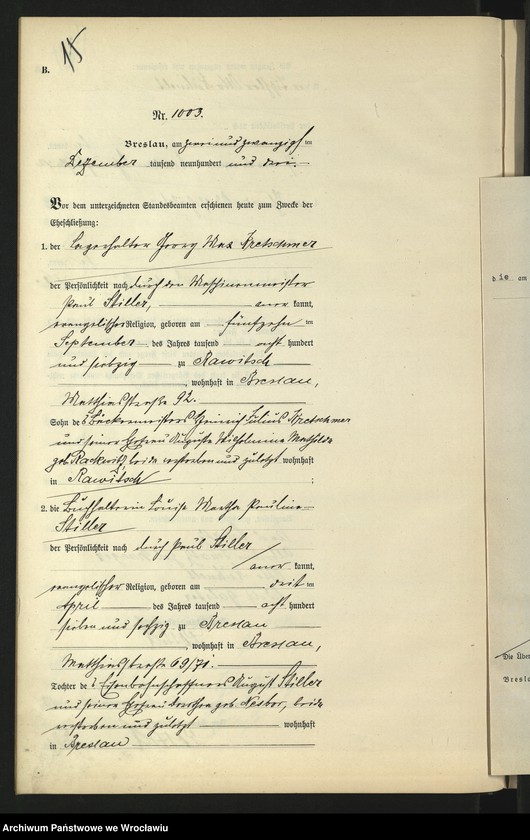 B.
15
Nr. 1003.
Breslau, am zwei und zwanzigsten
Dezember tausend neunhundert und drei.
Vor dem unterzeichneten Standesbeamten erschienen heute zum Zwecke der
Eheschließung:
1. der Lagerhalter Georg Max Kretschmer
der Persönlichkeit nach durch den Maschinenmeister
Paul Stiller, aner kannt,
evangelischer Religion, geboren am fünfzehnten
September des Jahres tausend acht hundert
und siebzig zu Rawitsch
, wohnhaft in Breslau,
Matthiasstraße 92.
Sohn des Bäckermeisters Heinrich Julius Kretschmer
und seiner Ehefrau Auguste Wilhelmine Mathilde
geb. Rackwitz, beide verstorben und zuletzt wohnhaft
in Rawitsch ;
2. die Buchhalterin Louise Martha Pauline
Stiller
der Persönlichkeit nach durch Paul Stiller
aner kannt,
evangelischer Religion, geboren am dritten
April des Jahres tausend acht hundert
sieben und sechzig zu Breslau
, wohnhaft in Breslau,
Matthiasstraße 69/71.
Tochter des Eisenbahnschaffners August Stiller
und seiner Ehefrau Dorothea geb. beide
verstorben und zuletzt wohnhaft
in Breslau
die am
Die Über
Bresla
Archiwum Państwowe we Wrocławiu